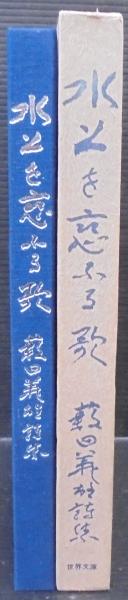 水上を恋ふる歌 藪田義雄詩集
水上を恋ふる歌 藪田義雄詩集
世界文庫